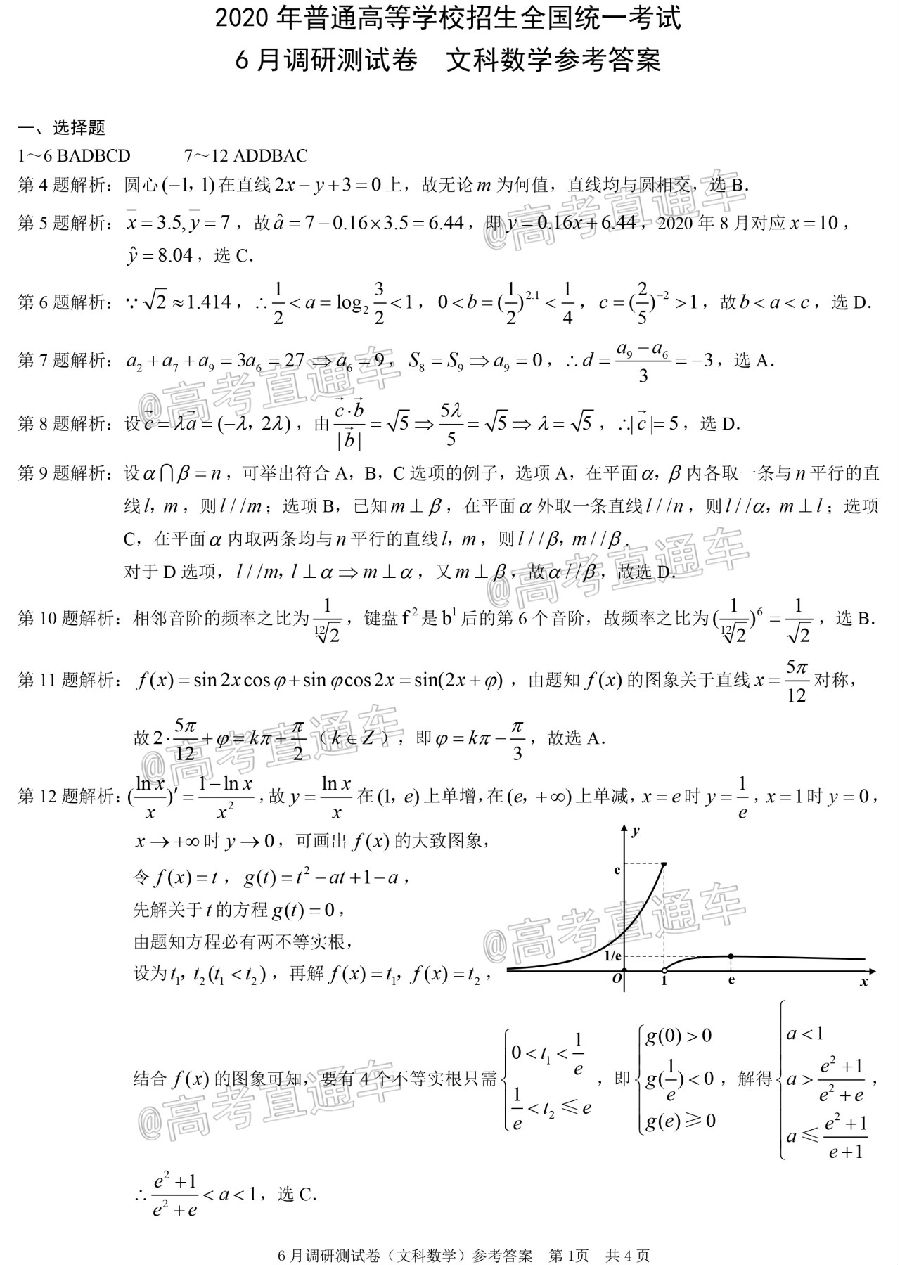 2020 年普通高等学校招生全国统一考试
6 月调研测试卷 文科数学参考答案
一、选择题
1～6 BADBCD 7～12 ADDBAC
第 4 题解析：圆心 (−1, 1) 在直线 2x − y + 3 = 0 上，故无论 m 为何值，直线均与圆相交，选 B．
第 5 题解析：x̄ = 3.5, ȳ = 7，故 â = 7 − 0.16×3.5 = 6.44，即 y = 0.16x + 6.44，2020 年 8 月对应 x = 10，
ŷ = 8.04，选 C．
第 6 题解析：∵ √2 ≈ 1.414，∴ 1/2 < a = log₂ 3/2 < 1，0 < b = (1/2)^2.1 < 1/4，c = (2/5)^−2 > 1，故 b < a < c，选 D．
第 7 题解析：a₂ + a₇ + a₉ = 3a₆ = 27 ⇒ a₆ = 9，S₈ = S₉ ⇒ a₉ = 0，∴ d = (a₉ − a₆)/3 = −3，选 A．
第 8 题解析：设 c⃗ = λa⃗ = (−λ, 2λ)，由 (c⃗·b⃗)/|b⃗| = √5 ⇒ 5λ/5 = √5 ⇒ λ = √5，∴|c⃗| = 5，选 D．
第 9 题解析：设 α⋂β = n，可举出符合 A，B，C 选项的例子，选项 A，在平面 α, β 内各取一条与 n 平行的直
线 l, m，则 l//m；选项 B，已知 m⊥β，在平面 α 外取一条直线 l//n，则 l//α, m⊥l；选项
C，在平面 α 内取两条均与 n 平行的直线 l, m，则 l//β, m//β．
对于 D 选项，l//m, l⊥α ⇒ m⊥α，又 m⊥β，故 α//β，故选 D．
第 10 题解析：相邻音阶的频率之比为 1/¹²√2，键盘 f² 是 b¹ 后的第 6 个音阶，故频率之比为 (1/¹²√2)⁶ = 1/√2，选 B．
第 11 题解析：f(x) = sin 2x cos φ + sin φ cos 2x = sin(2x + φ)，由题知 f(x) 的图象关于直线 x = 5π/12 对称，
故 2·5π/12 + φ = kπ + π/2（k∈Z），即 φ = kπ − π/3，故选 A．
第 12 题解析：(ln x/x)′ = (1 − ln x)/x²，故 y = ln x/x 在 (1, e) 上单增，在 (e, +∞) 上单减，x = e 时 y = 1/e，x = 1 时 y = 0，
x → +∞ 时 y → 0，可画出 f(x) 的大致图象，
令 f(x) = t，g(t) = t² − at + 1 − a，
先解关于 t 的方程 g(t) = 0，
由题知方程必有两不等实根，
设为 t₁, t₂ (t₁ < t₂)，再解 f(x) = t₁, f(x) = t₂，
y
e
1/e
O 1 e x
结合 f(x) 的图象可知，要有 4 个不等实根只需 {0 < t₁ < 1/e, 1/e < t₂ ≤ e，即 {g(0) > 0, g(1/e) < 0, g(e) ≥ 0，解得 {a < 1, a > (e² + 1)/(e² + e), a ≤ (e² + 1)/(e + 1)，
∴ (e² + 1)/(e² + e) < a < 1，选 C．
6 月调研测试卷（文科数学）参考答案 第 1页 共 4 页
@高考直通车
@高考直通车
@高考直通车
@高考直通车
@高考直通车
@高考直通车